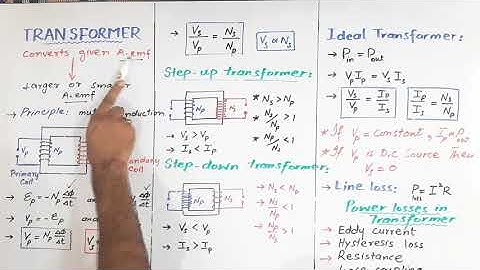 TRANSFORMER
Converts given A.emf
Larger or smaller
A.emf
→ Principle: mutual induction
Vp
Np
Primary
Coil
Secondary
Coil
→ Ep = -Np Δϕ/Δt
→ Vp = -Ep
→ Vp = Np Δϕ/Δt
→ Vs/Vp = Ns/Np
Vs ∝ Ns
Step-up transformer:
Np
Ns
* Ns > Np
* Ns/Np > 1
* Np/Ns < 1
→ Vs > Vp
→ Is < Ip
Step-down transformer:
Np
Ns
→ Ns < Np
→ Ns/Np < 1
→ Np/Ns > 1
→ Vs < Vp
→ Is > Ip
Ideal Transformer:
→ Pin = Pout
→ VpIp = VsIs
→ Vs/Vp = Ip/Is = Ns/Np
* If Vp = Constant, Ip ∝ Pout
* If Vp is D.C Source Then
Vs = 0
→ Line loss: P = I²R
Power losses in
Transformer
→ Eddy current
→ Hysteresis loss
→ Resistance